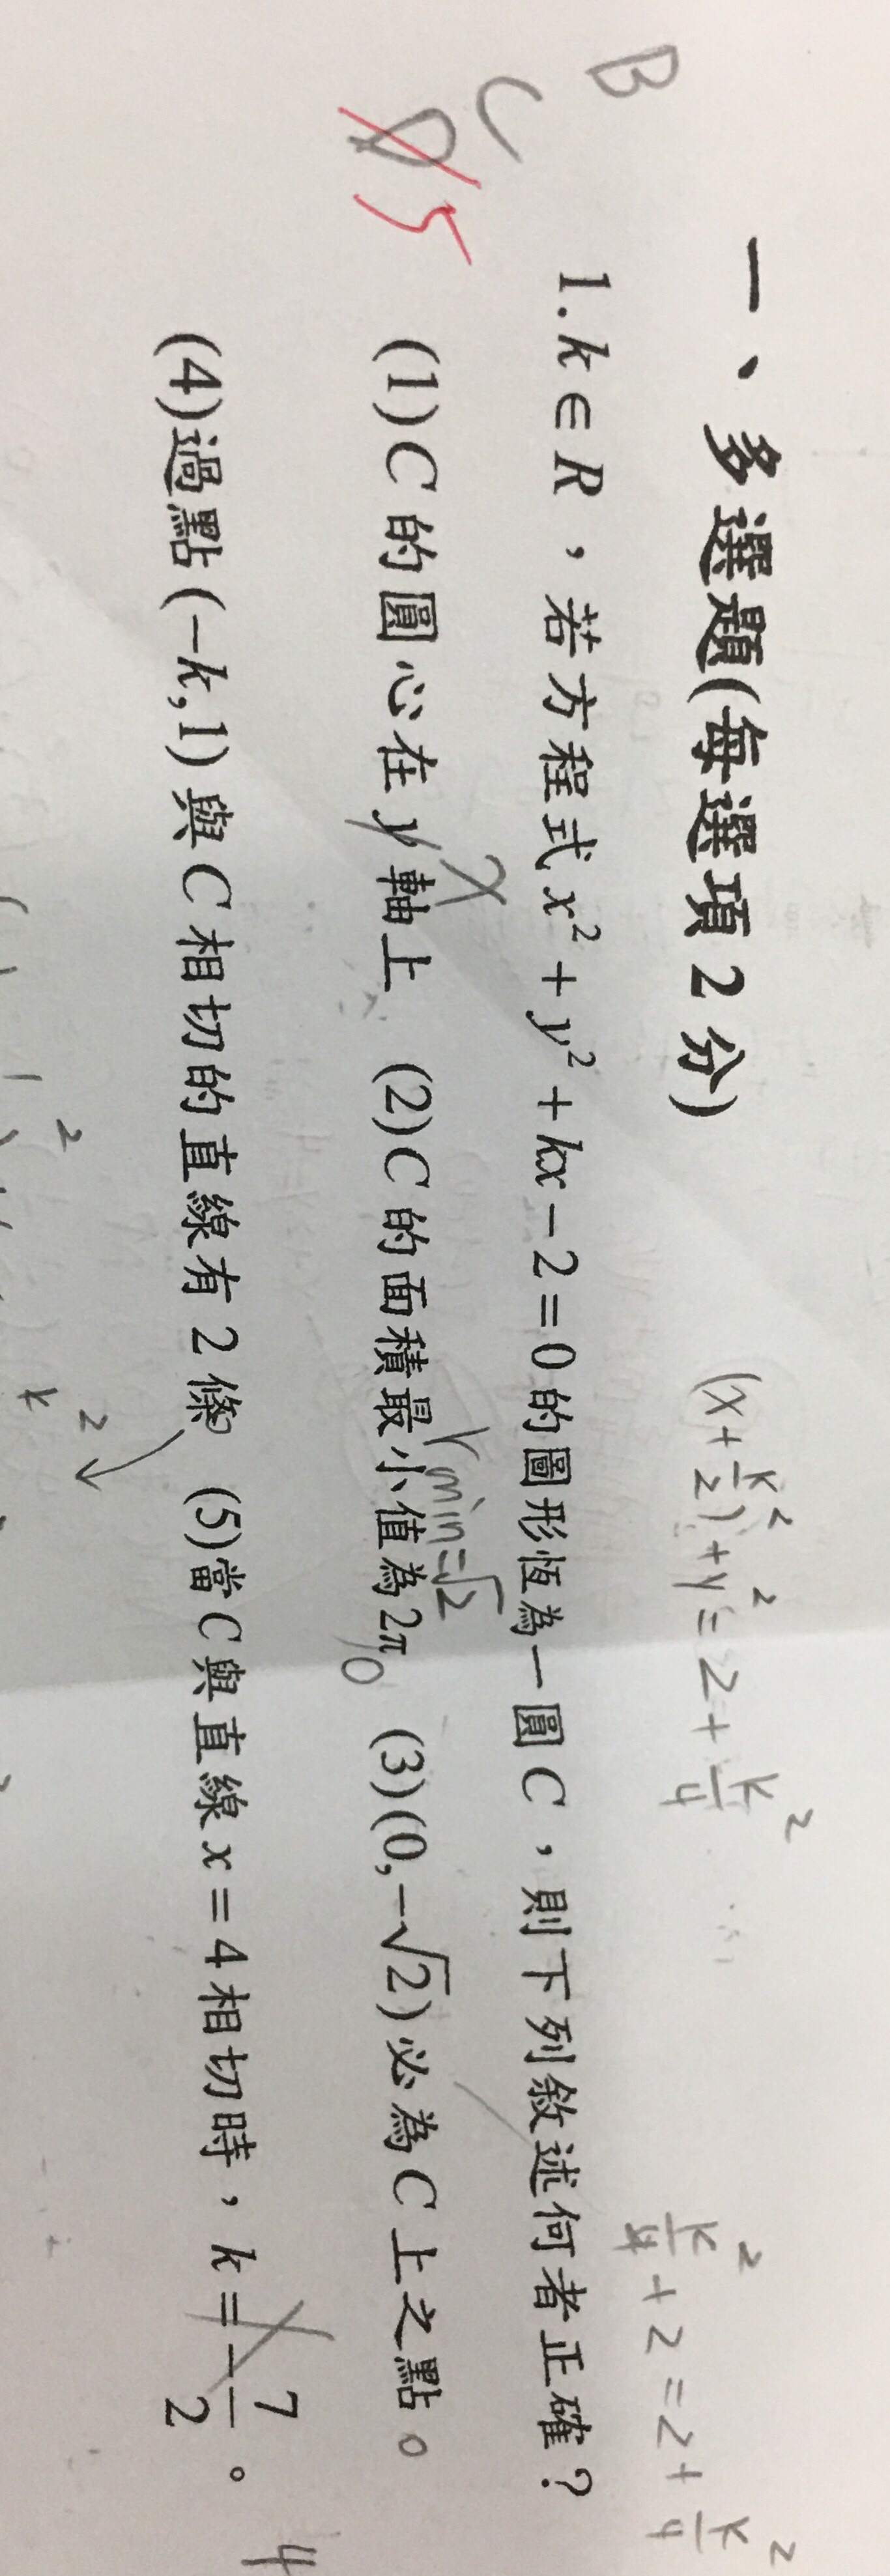 一、多選題(每選項2分)
(x+k/2)²+y²=2+k²/4
k²/4+2=2+k²/4
B
1. k∈R，若方程式x²+y²+kx−2=0的圖形恆為一圓C，則下列敘述何者正確？
C
x
rmin=√2
D 5
(1)C的圓心在y軸上 (2)C的面積最小值為2π (3)(0,−√2)必為C上之點。
(4)過點(−k,1)與C相切的直線有2條 (5)當C與直線x=4相切時，k=−7/2。
4